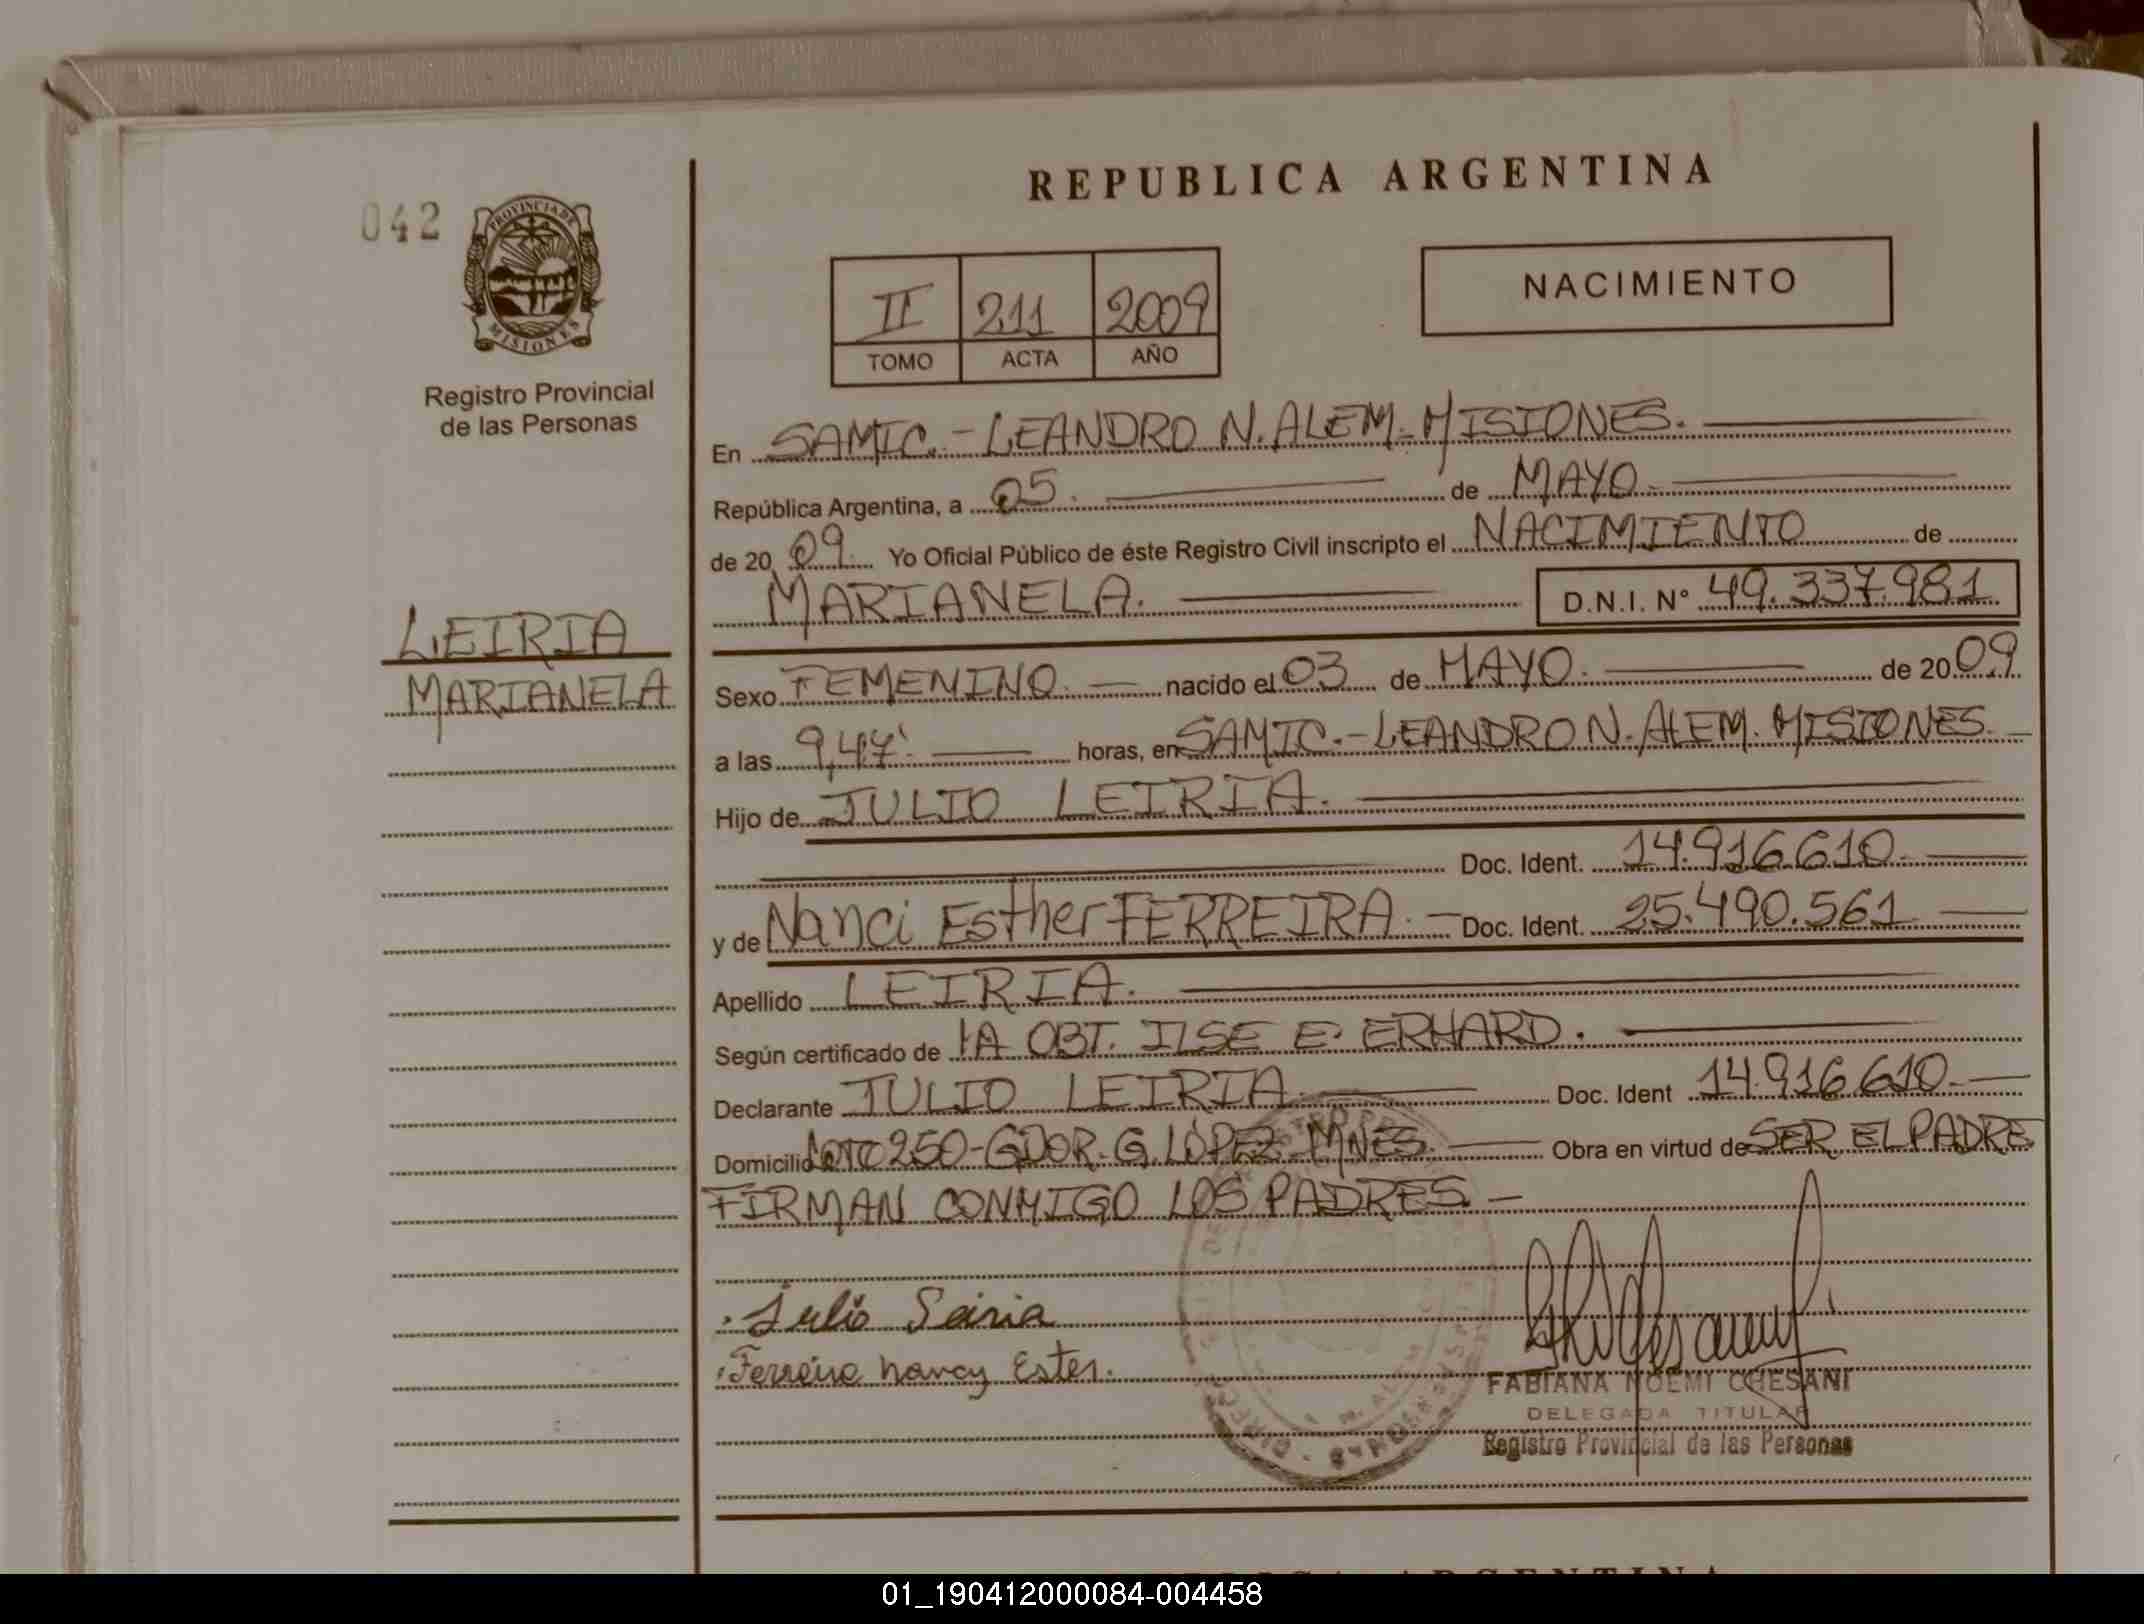 042
PROVINCIA DE
MISIONES
Registro Provincial
de las Personas
LEIRIA
MARIANELA
REPUBLICA ARGENTINA
II 211 2009
TOMO ACTA AÑO
NACIMIENTO
En SAMIC.-LEANDRO N. ALEM.-MISIONES.
República Argentina, a 05. de MAYO.
de 20 09. Yo Oficial Público de éste Registro Civil inscripto el NACIMIENTO de
MARIANELA. D.N.I. Nº 49.337.981
Sexo FEMENINO. nacido el 03 de MAYO. de 20 09.
a las 9,47' horas, en SAMIC.-LEANDRO N. ALEM. MISIONES.
Hijo de JULIO LEIRIA.
Doc. Ident. 14.916.610.
y de Nanci Esther FERREIRA. Doc. Ident. 25.490.561
Apellido LEIRIA.
Según certificado de LA OBT. ILSE E. ERHARD.
Declarante JULIO LEIRIA. Doc. Ident 14.916.610.
Domicilio LOTE 250-GDOR. G. LÓPEZ-MNES. Obra en virtud de SER EL PADRE
FIRMAN CONMIGO LOS PADRES.
Julio Leiria
Ferreira nancy Ester.
FABIANA NOEMI CHESANI
DELEGADA TITULAR
Registro Provincial de las Personas
REPUBLICA ARGENTINA
01_190412000084-004458